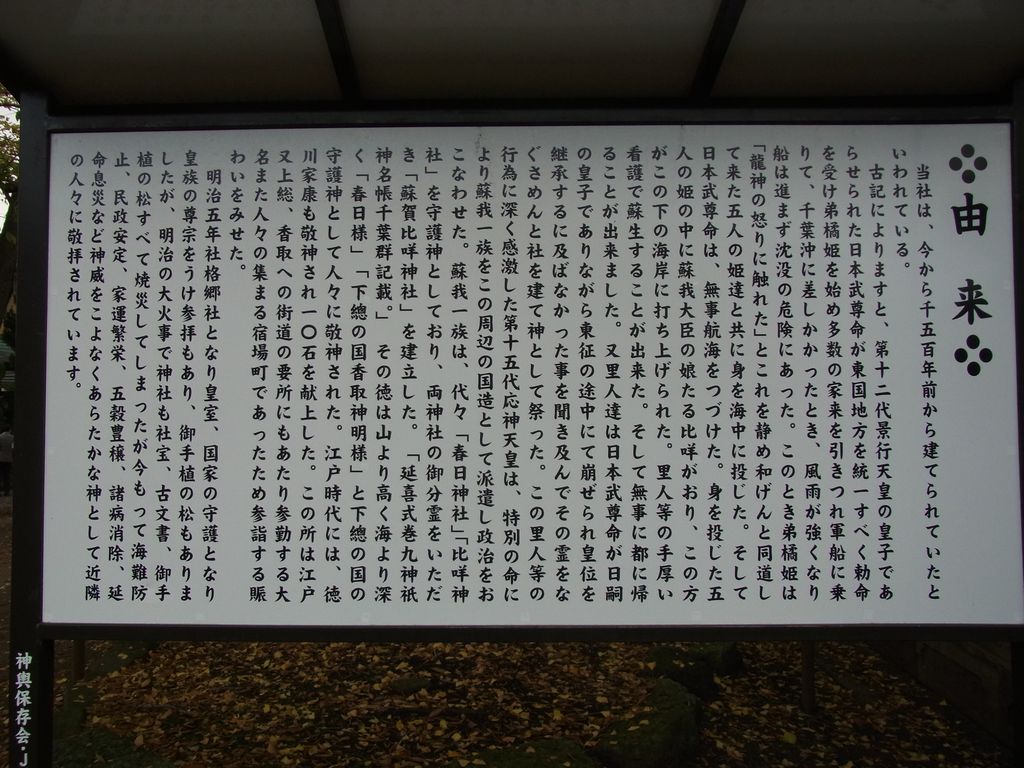 由来
当社は、今から千五百年前から建てられていたと
いわれている。
古記によりますと、第十二代景行天皇の皇子であ
らせられた日本武尊命が東国地方を統一すべく勅命
を受け弟橘姫を始め多数の家来を引きつれ軍船に乗
りて、千葉沖に差しかかったとき、風雨が強くなり
船は進まず沈没の危険にあった。このとき弟橘姫は
「龍神の怒りに触れた」とこれを静め和げんと同道し
て来た五人の姫達と共に身を海中に投じた。そして
日本武尊命は、無事航海をつづけた。身を投じた五
人の姫の中に蘇我大臣の娘たる比咩がおり、この方
がこの下の海岸に打ち上げられた。里人等の手厚い
看護で蘇生することが出来た。そして無事に都に帰
ることが出来ました。又里人達は日本武尊命が日嗣
の皇子でありながら東征の途中にて崩ぜられ皇位を
継承するに及ばなかった事を聞き及んでその霊をな
ぐさめんと社を建て神として祭った。この里人等の
行為に深く感激した第十五代応神天皇は、特別の命に
より蘇我一族をこの周辺の国造として派遣し政治をお
こなわせた。蘇我一族は、代々「春日神社」「比咩神
社」を守護神としており、両神社の御分霊をいただ
き「蘇賀比咩神社」を建立した。「延喜式巻九神祇
神名帳千葉群記載」その徳は山より高く海より深
く「春日様」「下總の国香取神明様」と下總の国の
守護神として人々に敬神された。江戸時代には、徳
川家康も敬神され一〇石を献上した。この所は江戸
又上総、香取への街道の要所にもあたり参勤する大
名また人々の集まる宿場町であったため参詣する賑
わいをみせた。
明治五年社格郷社となり皇室、国家の守護となり
皇族の尊宗をうけ参拝もあり、御手植の松もありま
したが、明治の大火事で神社も社宝、古文書、御手
植の松すべて焼災してしまったが今もって海難防
止、民政安定、家運繁栄、五穀豊穣、諸病消除、延
命息災など神威をこよなくあらたかな神として近隣
の人々に敬拝されています。
神輿保存会・J